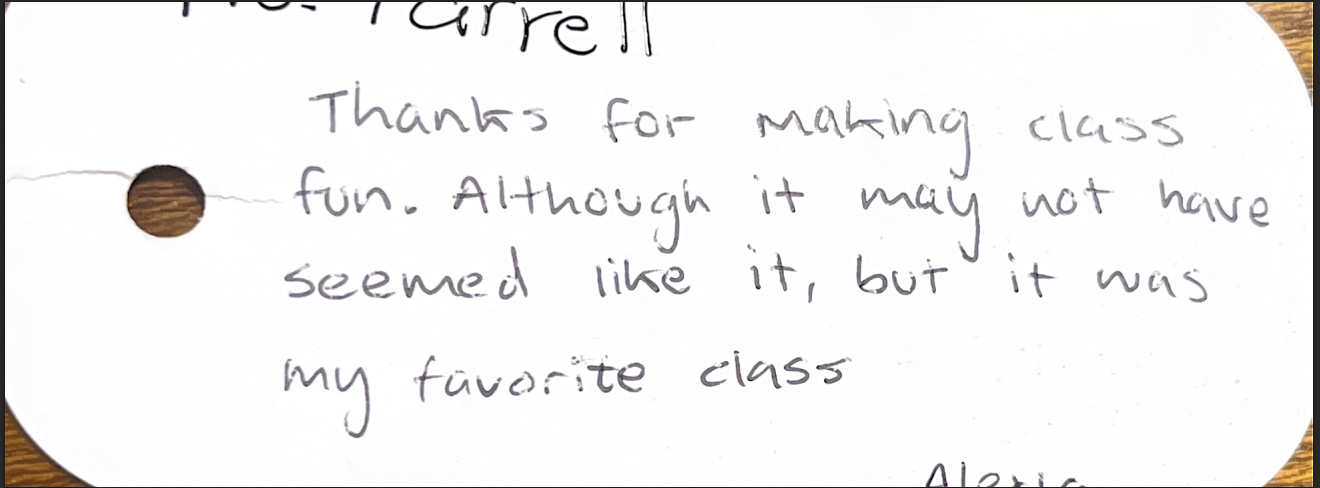 Thanks for making class
fun. Although it may not have
seemed like it, but it was
my favorite class